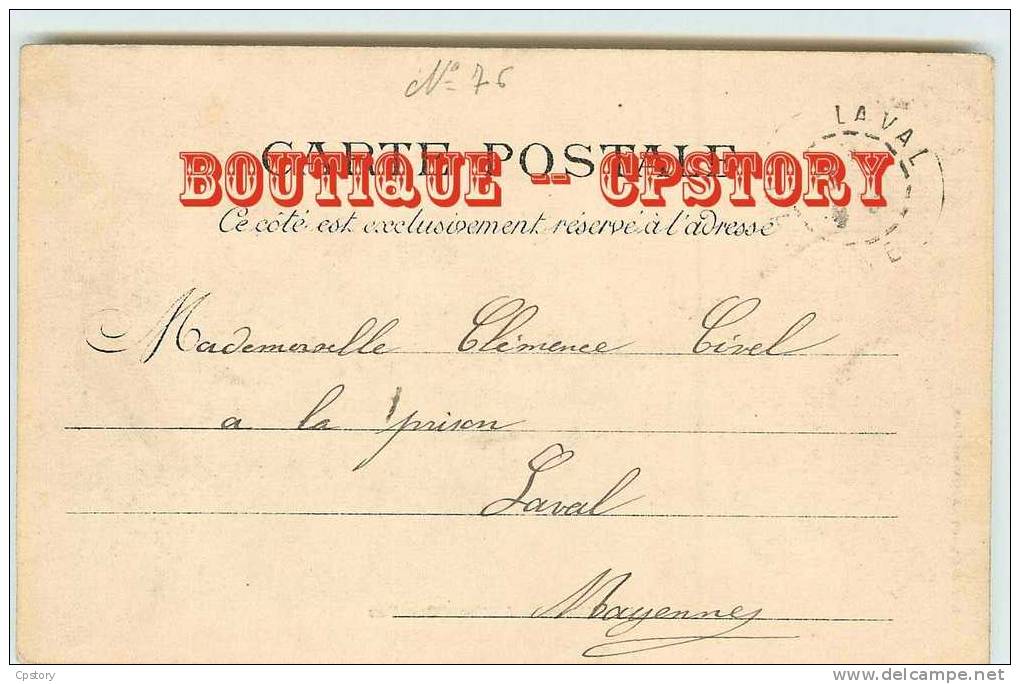 N° 76
LAVAL
CARTE POSTALE
BOUTIQUE -- CPSTORY
Ce côté est exclusivement réservé à l'adresse
Mademoiselle Clémence Civel
a la prison
Laval
Mayenne
Cpstory
www.delcampe.net